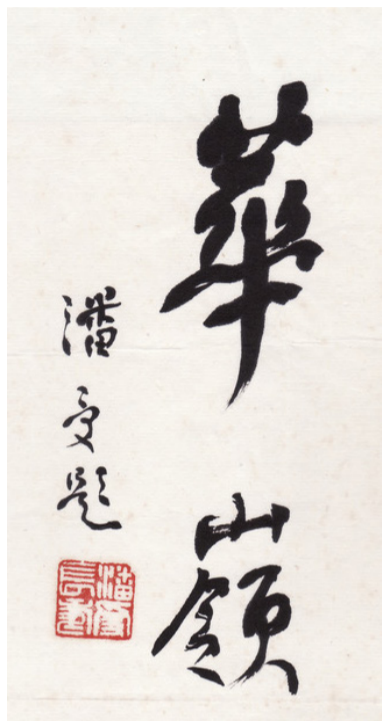 華嶺
潘受題